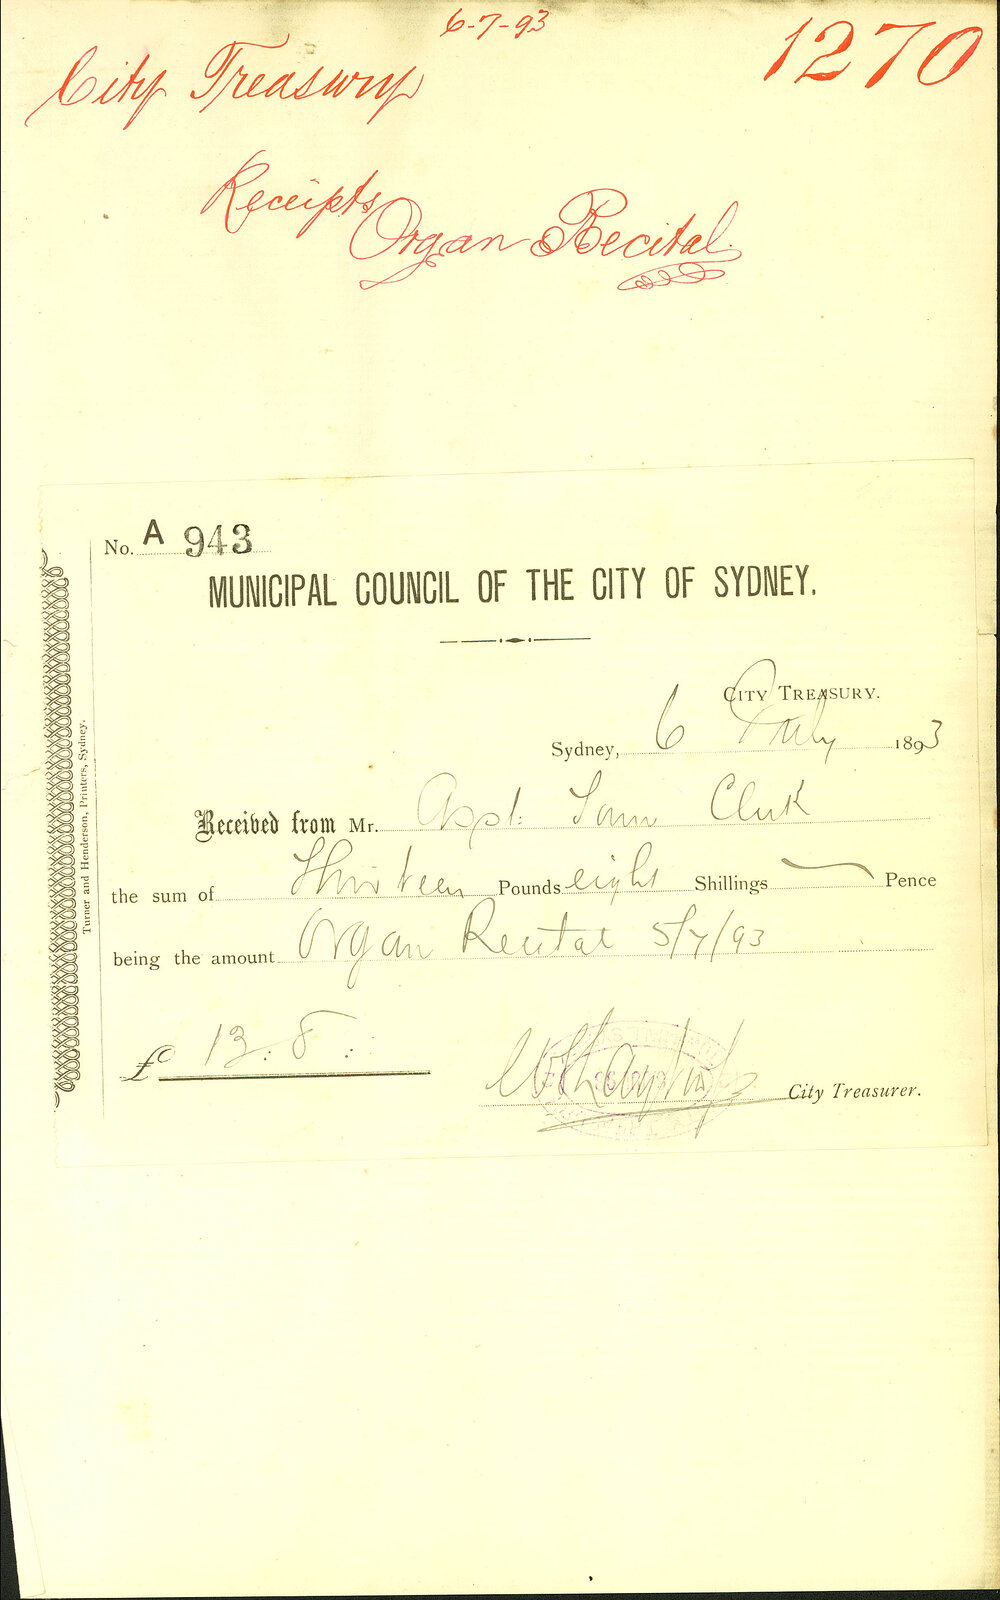 6-7-93
1270
City Treasury
Receipts
Organ Recital
No. A 943
MUNICIPAL COUNCIL OF THE CITY OF SYDNEY.
CITY TREASURY.
Sydney, 6 July 1893
Received from Mr. Asst: Town Clerk
the sum of Thirteen Pounds eight Shillings — Pence
being the amount Organ Recital 5/7/93
£ 13: 8 :
City Treasurer.
Turner and Henderson, Printers, Sydney.